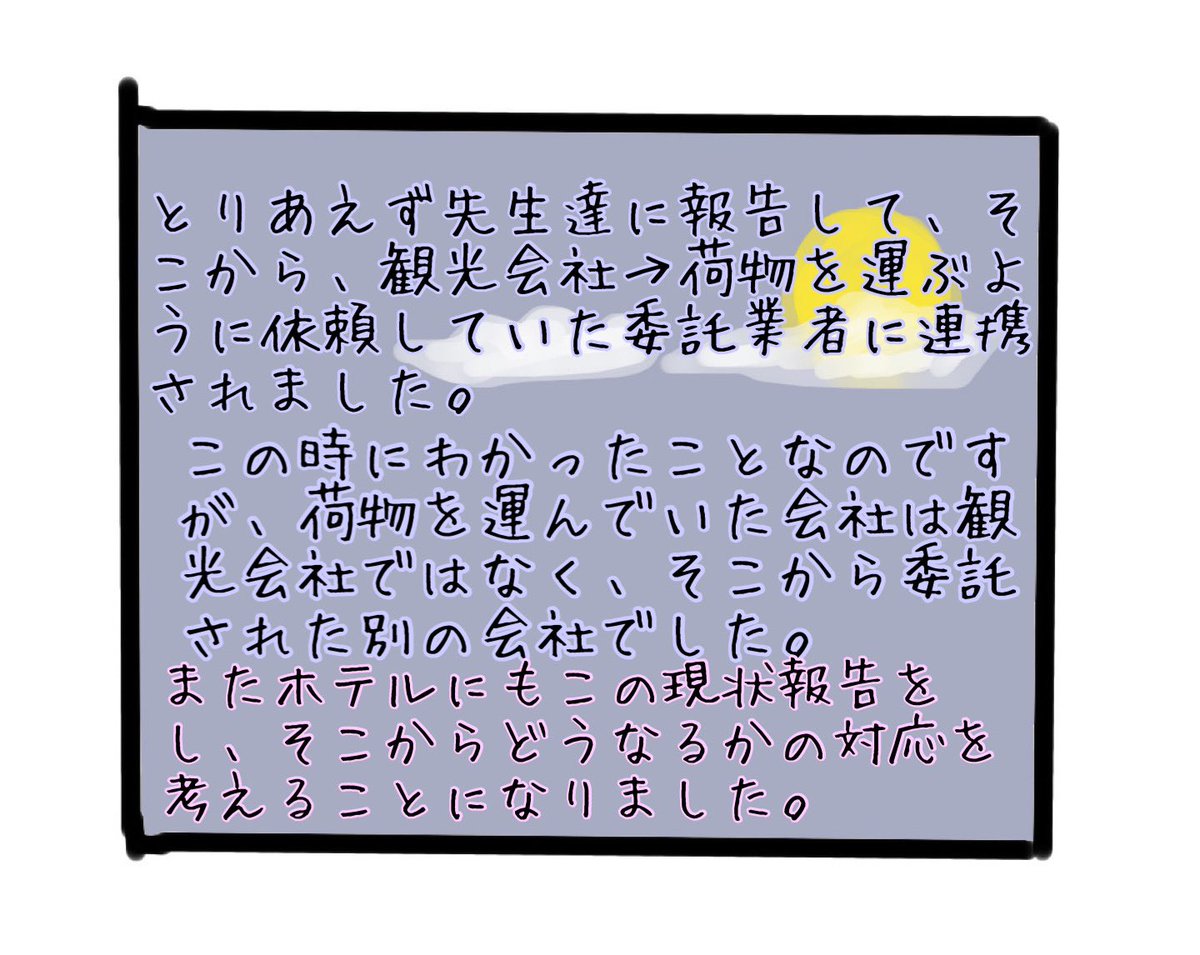 とりあえず先生達に報告して、そ
こから、観光会社→荷物を運ぶよ
うに依頼していた委託業者に連携
されました。
この時にわかったことなのです
が、荷物を運んでいた会社は観
光会社ではなく、そこから委託
された別の会社でした。
またホテルにもこの現状報告を
し、そこからどうなるかの対応を
考えることになりました。